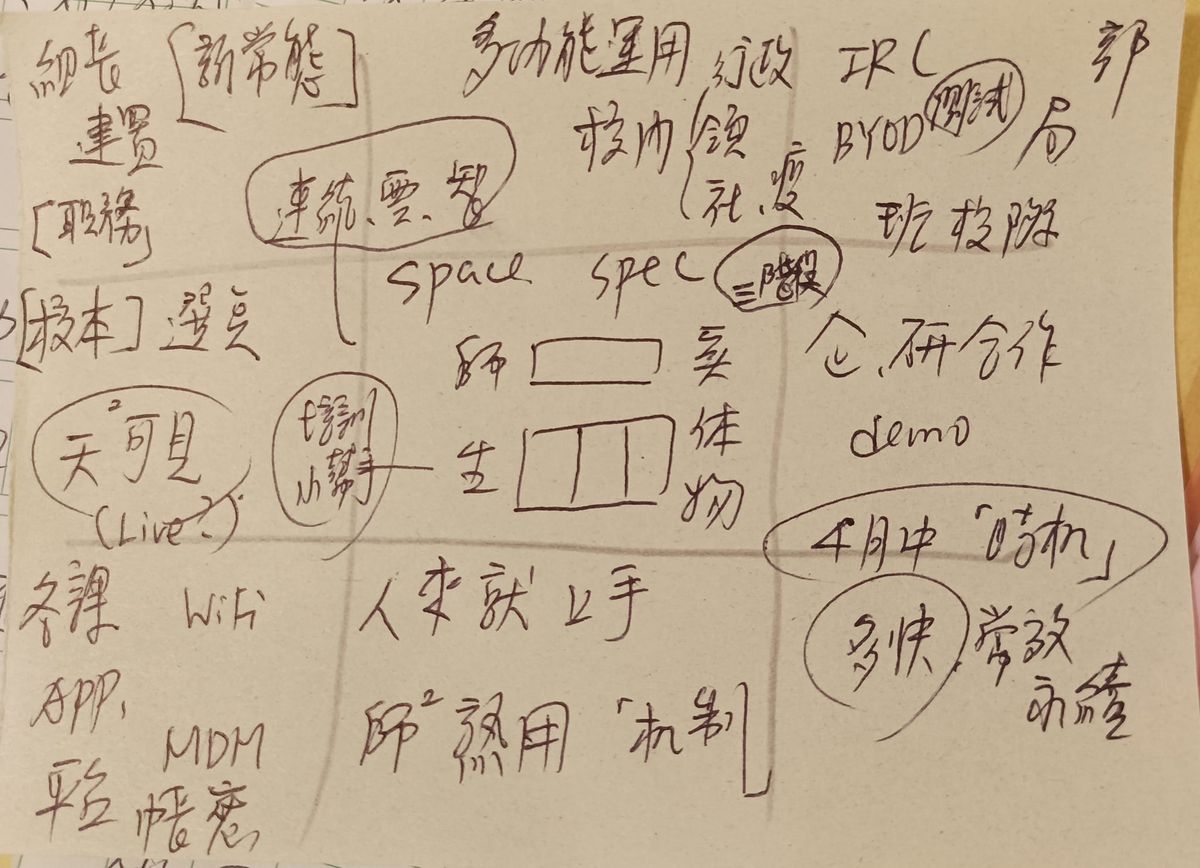 組長 [新常態]
建置
[職務]
連結、雲、智
[校本] 選
天²可見
(Live?)
培訓
小幫手
各課 WiFi
APP、
MDM
平台 帳
多功能運用
校內 行政
領
社、疫
space spec
三階段
師 实
生 体
物
人來就上手
師² 熟用「机制」
IRC 部
BYOD 測試 局
班校際
企、研合作
demo
4月中「時机」
多快、常效
永續